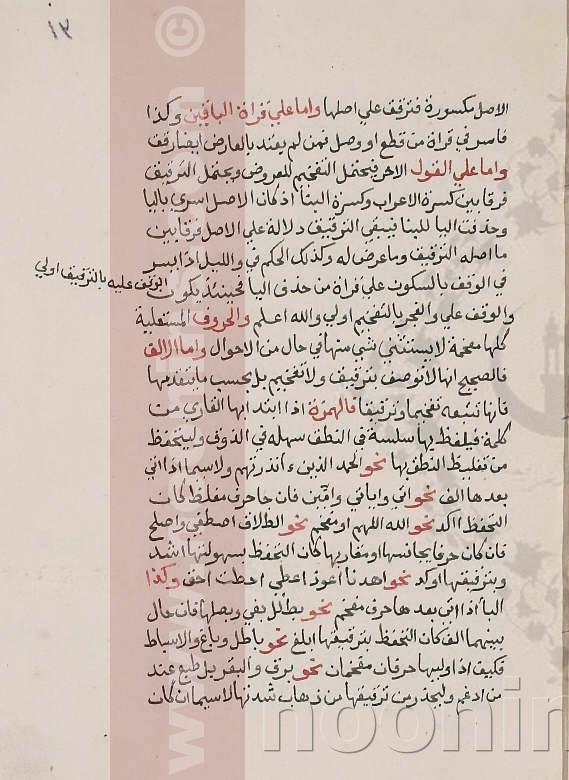 ١٣
الاصل مكسورة فترقق علي اصلها واما علي قراة الباقين وكذا
فاسر في قراة من قطع او وصل فمن لم يعتد بالعارض ايضا رقق
واما علي القول الاخر فيحتمل التفخيم للعروض ويحتمل الترقيق
فرقا بين كسرة الاعراب وكسرة البنا اذ كان الاصل اسري باليا
وحذفت اليا للبنا فيبقي الترقيق دلالة علي الاصل فرقا بين
ما اصله الترقيق وما عرض له وكذلك الحكم في والليل اذا يسر
في الوقف بالسكون علي قراة من حذف اليا فحينئذ يكون
الوقف عليه بالترقيق اولي
والوقف علي والفجر بالتفخيم اولي والله اعلم والحروف المستفلية
كلها مفخمة لا يستثني شي منها في حال من الاحوال واما الالف
فالصحيح انها لا توصف بترقيق ولا تفخيم بل بحسب ما يتقدمها
فانها تتبعه تفخيما وترقيقا فالهمزة اذا ابتدا بها القاري من
كلمة فيلفظ بها سلسة في النطق سهله في الذوق وليتحفظ
من تغليظ النطق بها نحو الحمد الذين ءانذرتهم ولاسيما اذا اتي
بعدها الف نحو اتي واياتي وامين فان جا حرف مغلظ كان
التحفظ ااكد نحو الله اللهم او مفخم نحو الطلاق اصطفي واصلح
فان كان حرفا يجانسها او مقاربها كان التحفظ بسهولتها اشد
وبترقيقها اوكد نحو اهدنا اعوذ اعطي احطت احق وكذا
البا اذا اتي بعدها حرف مفخم نحو بطل بغي وبصلها فان حال
بينهما الف كان التحفظ بترقيقها ابلغ نحو باطل وباغ والاسباط
فكيف اذا وليها حرفان مفخمان نحو برق والبقر بل طبع عند
من ادغم وليحذر من ترقيقها من ذهاب شدتها لاسيما ان كان
noonin